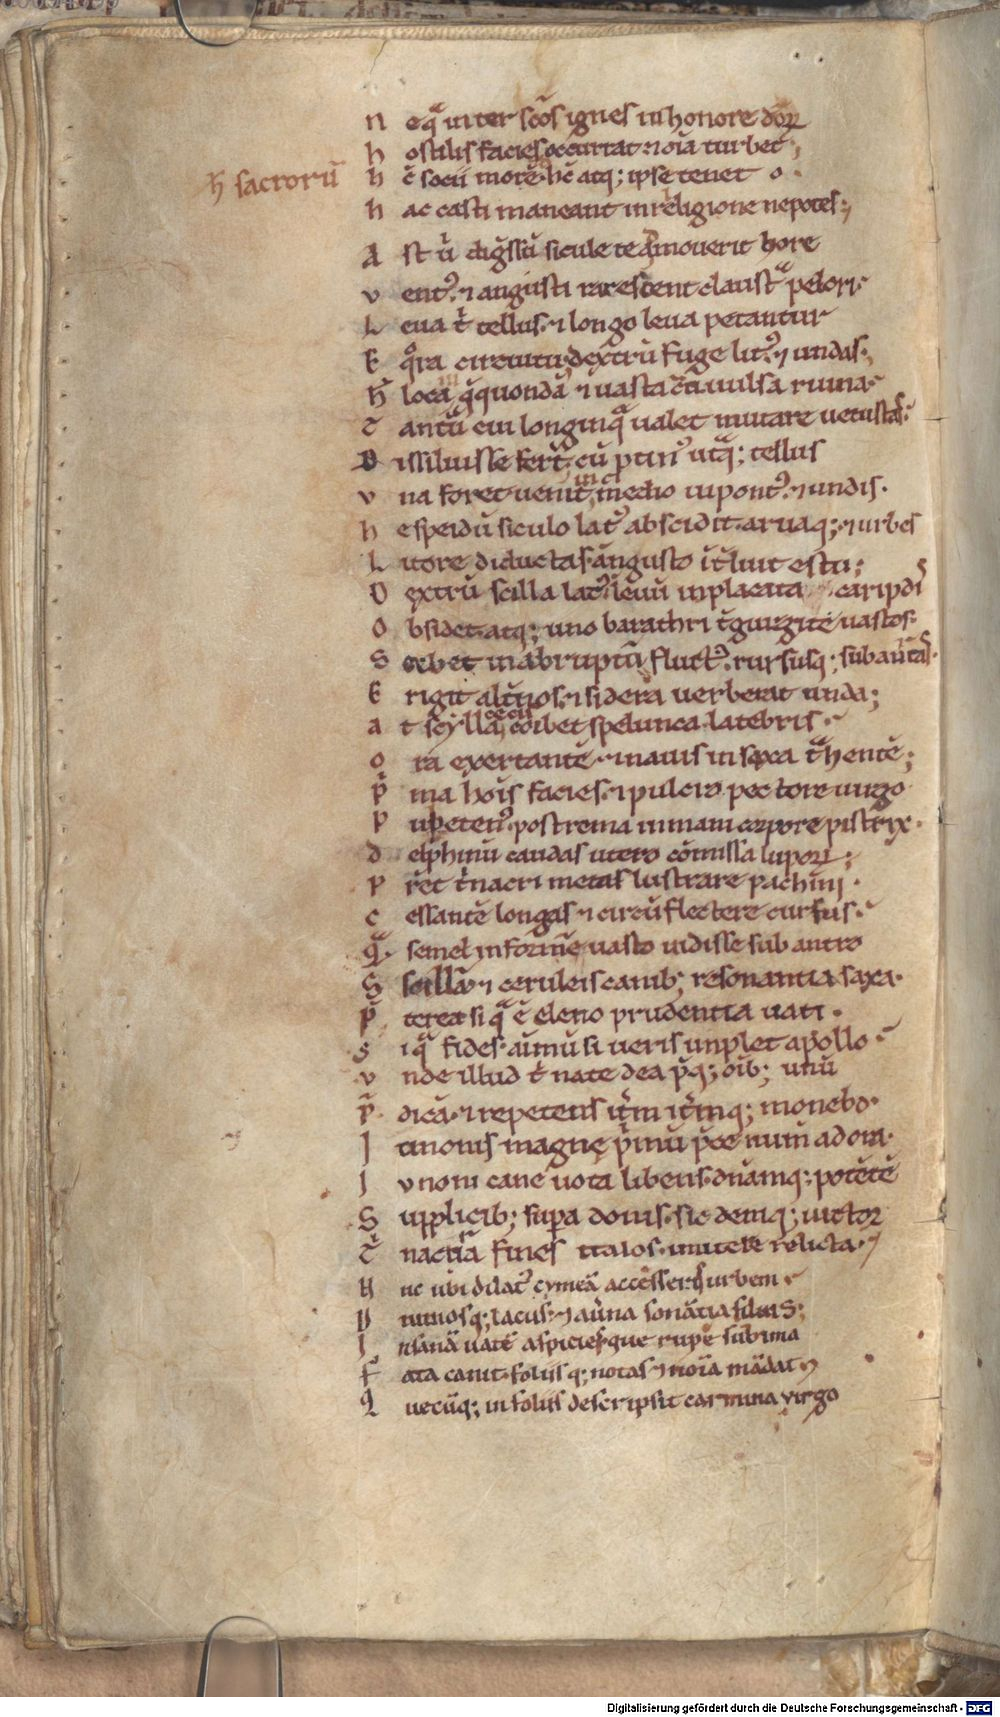 N eqͣ inter sc̄os ignes in honore deoꝝ
h ostilis facies occurrat ⁊ oīa turbet
h̄ sacrorū
h c̄ socii morē hc̄ atq; ipse teneto
h ac casti maneant in religione nepotes;
A st ů digs̄sū sicule te amouerit hore
v entꝰ ⁊ angusti rarescent claustͣ pelori.
L eua t̊ tellus ⁊ longo leua petantur
E qͦra circuitu dextrū fuge litꝰ ⁊ undas.
h̄ loca qͣ̄quondā ⁊ uasta uulsa ruina
T antū eui longinqͣ ualet mutare uetustas
D issiluisse ferūt cū ptinꝰ utͣq; tellus
v na foret uenit medio ui pontꝰ ⁊ undis.
h esperiū siculo latꝰ abscidit aruaq; ⁊ urbes
L itore diductas angusto īt̄luit estu;
D extrū scilla latꝰ leuū inplacata caripdis
O bsidet atq; uno barathri t̄ gurgite uastos
S orbet in abruptū fluctꝰ rursusq; sub auras
E rigit alt̄nos ⁊ sidera uerberat unda;
a t scyllā cecis coibet spelunca latebris
o ra exertantē ⁊ nauis in saxa tͣhentē;
p̊ ma hoīs facies ⁊ pulcro pectore uirgo
P upetenꝰ postrema inmani corpore pistrix.
d elphinū caudas utero cōmissa lupoꝝ;
P r̄et t̊nacri metas lustrare pachini
C essantē longas ⁊ circūflectere cursus.
Qͣ semel informē uasto uidisse sub antro
S scillā ⁊ ceruleis canib; resonantia saxa.
p̄ terea siqͣ ē eleno prudentia uati.
s iqͣ fides aīmū si ueris inplet apollo
v nde illud t̊ nate dea p̄q; oīb; unū
p̄ dicā ⁊ repetens it̄m it̄mq; monebo.
I unonis magne p̊mū p̄ce numē adora.
I vnoni cane uota libens dn̄amq; potētē
S upplicib; supera donis sic deniq; uictor
T̊ nactiā fines italos mittere relicta.
H uc ubi dilatꝰ cymeā accesseris urbem
D iuinosq; lacus ⁊ auerna sonātia siluis;
I nsanā uatē aspicies que rupe sub ima
F ata canit foliisq; notas ⁊ noīa mādat
Q uecūq; in foliis descripsit carmina virgo
Digitalisierung gefördert durch die Deutsche Forschungsgemeinschaft - DFG